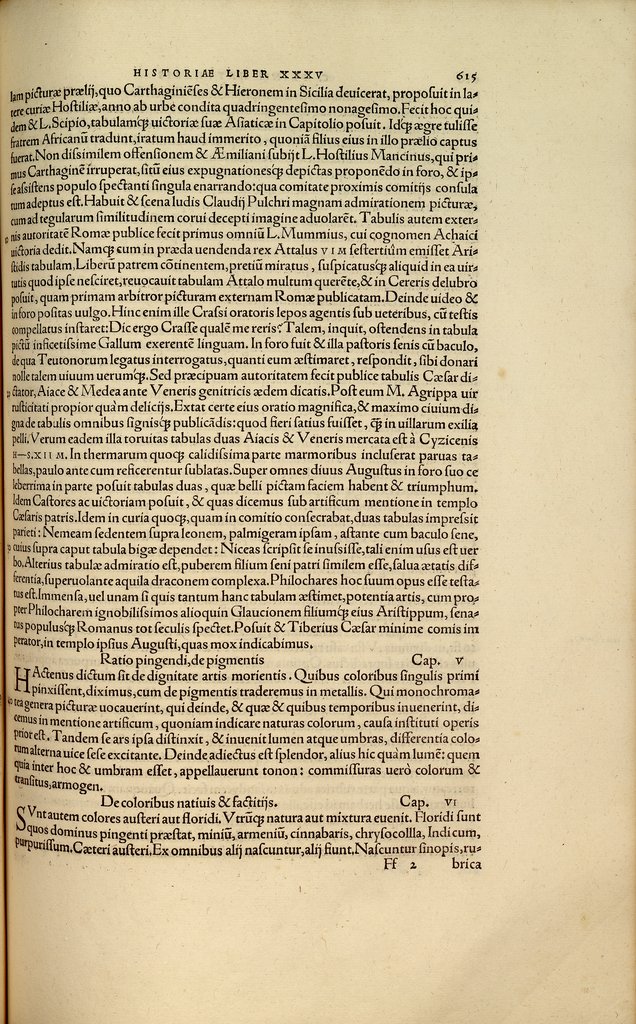 HISTORIAE LIBER XXXV 615
lam picturæ prælij, quo Carthaginiẽses & Hieronem in Sicilia deuicerat, proposuit in la⸗
tere curiæ Hostiliæ, anno ab urbe condita quadringentesimo nonagesimo. Fecit hoc qui⸗
dem & L. Scipio, tabulamq́ʒ uictoriæ suæ Asiaticæ in Capitolio posuit. Idq́ʒ ægre tulisse
fratrem Africanũ tradunt, iratum haud immerito, quoniã filius eius in illo prælio captus
fuerat. Non dissimilem offensionem & Æmiliani subijt L. Hostilius Mancinus, qui pri⸗
mus Carthaginẽ irruperat, sitũ eius expugnationesq́ʒ depictas proponẽdo in foro, & ip⸗
se assistens populo spectanti singula enarrando: qua comitate proximis comitijs consula
tum adeptus est. Habuit & scena ludis Claudij Pulchri magnam admirationem picturæ,
cum ad tegularum similitudinem corui decepti imagine aduolarẽt. Tabulis autem exter⸗
nis autoritatẽ Romæ publice fecit primus omniũ L. Mummius, cui cognomen Achaici
uictoria dedit. Namq́ʒ cum in præda uendenda rex Attalus VI M sestertiũm emisset Ari⸗
stidis tabulam, Liberũ patrem cõtinentem, pretiũ miratus, suspicatusq́ʒ aliquid in ea uir⸗
tutis quod ipse nesciret, reuocauit tabulam Attalo multum querẽte, & in Cereris delubro
posuit, quam primam arbitror picturam externam Romæ publicatam. Deinde uideo &
in foro positas uulgo. Hinc enim ille Crassi oratoris lepos agentis sub ueteribus, cũ testis
compellatus instaret: Dic ergo Crasse qualẽ me reris? Talem, inquit, ostendens in tabula
pictũ inficetissime Gallum exerentẽ linguam. In foro fuit & illa pastoris senis cũ baculo,
de qua Teutonorum legatus interrogatus, quanti eum æstimaret, respondit, sibi donari
nolle talem uiuum uerumq́ʒ. Sed præcipuam autoritatem fecit publice tabulis Cæsar di⸗
ctator, Aiace & Medea ante Veneris genitricis ædem dicatis. Post eum M. Agrippa uir
rusticitati propior quàm delicijs. Extat certe eius oratio magnifica, & maximo ciuium di⸗
gna de tabulis omnibus signisq́ʒ publicãdis: quod fieri satius fuisset, q̃ in uillarum exilia
pelli. Verum eadem illa toruitas tabulas duas Aiacis & Veneris mercata est à Cyzicenis
H–S. XII M. In thermarum quoq́ʒ calidissima parte marmoribus incluserat paruas ta⸗
bellas, paulo ante cum reficerentur sublatas. Super omnes diuus Augustus in foro suo ce
leberrima in parte posuit tabulas duas, quæ belli pictam faciem habent & triumphum.
Idem Castores ac uictoriam posuit, & quas dicemus sub artificum mentione in templo
Cæsaris patris. Idem in curia quoq́ʒ, quam in comitio consecrabat, duas tabulas impressit
parieti: Nemeam sedentem supra leonem, palmigeram ipsam, astante cum baculo sene,
cuius supra caput tabula bigæ dependet: Niceas scripsit se inussisse, tali enim usus est uer
bo. Alterius tabulæ admiratio est, puberem filium seni patri similem esse, salua ætatis dif⸗
ferentia, superuolante aquila draconem complexa. Philochares hoc suum opus esse testa⸗
tus est. Immensa, uel unam si quis tantum hanc tabulam æstimet, potentia artis, cum pro⸗
pter Philocharem ignobilissimos alioquin Glaucionem filiumq́ʒ eius Aristippum, sena⸗
tus populusq́ʒ Romanus tot seculis spectet. Posuit & Tiberius Cæsar minime comis im
perator, in templo ipsius Augusti, quas mox indicabimus.
Ratio pingendi, de pigmentis Cap. V
HActenus dictum sit de dignitate artis morientis. Quibus coloribus singulis primi
pinxissent, diximus, cum de pigmentis traderemus in metallis. Qui monochroma⸗
tea genera picturæ uocauerint, qui deinde, & quæ & quibus temporibus inuenerint, di⸗
cemus in mentione artificum, quoniam indicare naturas colorum, causa instituti operis
prior est. Tandem se ars ipsa distinxit, & inuenit lumen atque umbras, differentia colo⸗
rum alterna uice sese excitante. Deinde adiectus est splendor, alius hic quàm lumẽ: quem
quia inter hoc & umbram esset, appellauerunt tonon: commissuras uerò colorum &
transitus, armogen.
De coloribus natiuis & factitijs. Cap. VI
SVnt autem colores austeri aut floridi. Vtrũq́ʒ natura aut mixtura euenit. Floridi sunt
quos dominus pingenti præstat, miniũ, armeniũ, cinnabaris, chrysocollla, Indicum,
purpurissum. Cæteri austeri. Ex omnibus alij nascuntur, alij fiunt. Nascuntur sinopis, ru⸗
Ff 2 brica